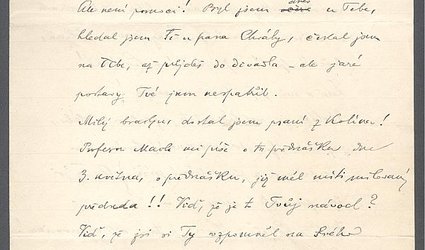 Ale není pomoci! Byl jsem dnes u Tebe,
hledal jsem Tě u pana Chvály, čekal jsem
na Tebe, až přijdeš do divadla – ale jaré
postavy Tvé jsem nespatřil.
Milý bratře, dostal jsem psaní z Kolína!
Profesor píše o tu přednášku dne
3. května, o přednášku, již měl míti milovaný
předseda!! Viď, že je to Tvůj návod?
Viď, že jsi si Ty vzpomněl na Svého